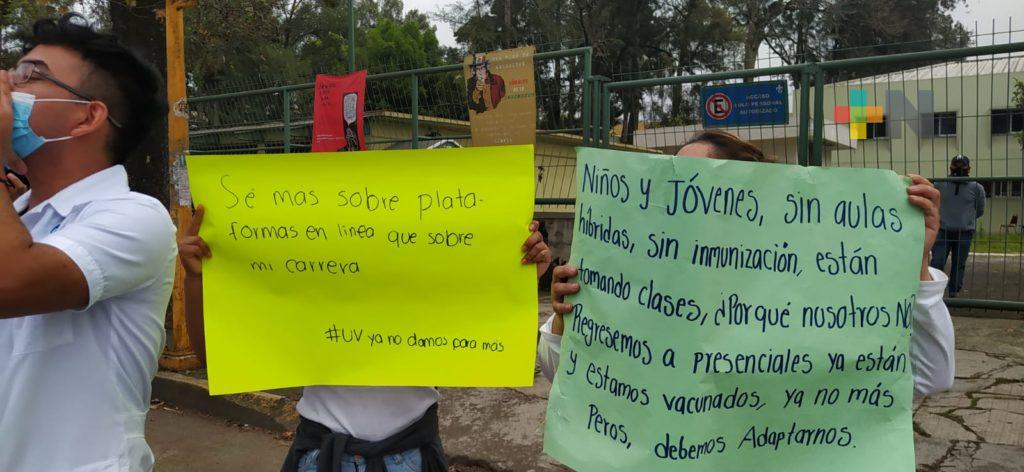 Sé más sobre plata-
formas en linea que sobre
mi carrera
#UV ya no damos para más
Niños y Jóvenes, sin aulas
híbridas, sin inmunización, están
tomando clases, ¿Porqué nosotros No?
Regresemos a presenciales ya están
y estamos vacunados, ya no más
Peros, debemos Adaptarnos.
ACCESO
SOLO PERSONAL
AUTORIZADO
N